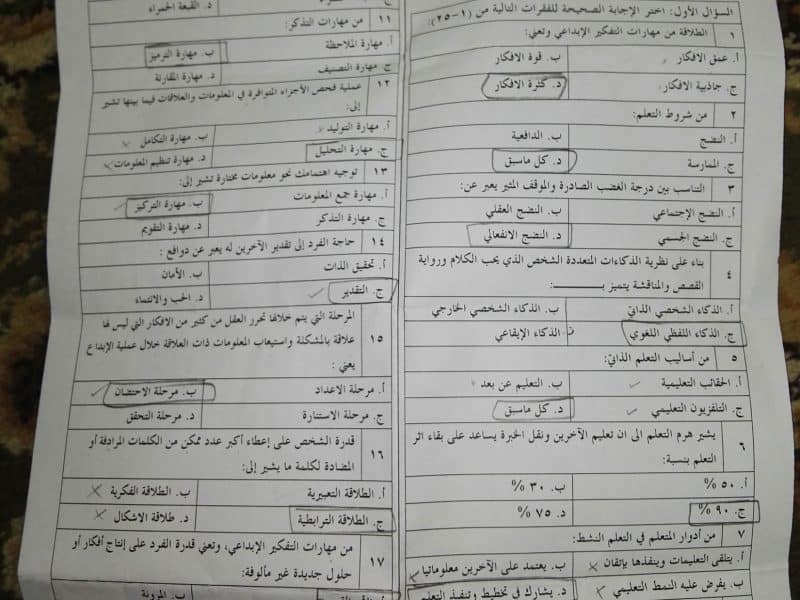 السؤال الأول: اختر الإجابة الصحيحة للفقرات التالية من (١-٢٥):
١ الطلاقة من مهارات التفكير الإبداعي وتعني:
أ. عمق الافكار ب. قوة الافكار
ج. جاذبية الافكار د. كثرة الافكار
٢ من شروط التعلم:
أ. النضج ب. الدافعية
ج. الممارسة د. كل ماسبق
٣ التناسب بين درجة الغضب الصادرة والموقف المثير يعبر عن:
أ. النضج الإجتماعي ب. النضج العقلي
ج. النضج الجسمي د. النضج الانفعالي
٤ بناء على نظرية الذكاءات المتعددة الشخص الذي يحب الكلام ورواية
القصص والمناقشة يتميز بـــــــــــ:
أ. الذكاء الشخصي الذاتي ب. الذكاء الشخصي الخارجي
ج. الذكاء اللفظي اللغوي د. الذكاء الإيقاعي
٥ من أساليب التعلم الذاتي:
أ. الحقائب التعليمية ب. التعليم عن بعد
ج. التلفزيون التعليمي د. كل ماسبق
٦ يشير هرم التعلم الى ان تعليم الآخرين ونقل الخبرة يساعد على بقاء اثر
التعلم بنسبة:
أ. ٥٠ % ب. ٣٠ %
ج. ٩٠ % د. ٧٥ %
٧ من أدوار المتعلم في التعلم النشط:
أ. يتلقى التعليمات وينفذها بإتقان ب. يعتمد على الآخرين معلوماتيا
ب. يفرض عليه النمط التعليمي د. يشارك في تخطيط وتنفيذ التعلم
د. القبعة الحمراء
١١ من مهارات التذكر:
أ. مهارة الملاحظة ب. مهارة الترميز
ج. مهارة التصنيف د. مهارة المقارنة
١٢ عملية فحص الأجزاء المتوافرة في المعلومات والعلاقات فيما بينها تشير
إلى:
أ. مهارة التوليد ب. مهارة التكامل
ج. مهارة التحليل د. مهارة تنظيم المعلومات
١٣ توجيه اهتمامك نحو معلومات مختارة تشير إلى:
أ. مهارة جمع المعلومات ب. مهارة التركيز
ج. مهارة التذكر د. مهارة التقويم
١٤ حاجة الفرد إلى تقدير الآخرين له يعبر عن دوافع :
أ. تحقيق الذات ب. الأمان
ج. التقدير د. الحب والانتماء
١٥ المرحلة التي يتم خلالها تحرر العقل من كثير من الافكار التي ليس لها
علاقة بالمشكلة واستيعاب المعلومات ذات العلاقة خلال عملية الإبداع
يعني :
أ. مرحلة الاعداد ب. مرحلة الاحتضان
ج. مرحلة الاستنارة د. مرحلة التحقق
١٦ قدرة الشخص على إعطاء أكبر عدد ممكن من الكلمات المرادفة أو
المضادة لكلمة ما يشير إلى:
أ. الطلاقة التعبيرية ب. الطلاقة الفكرية
ج. الطلاقة الترابطية د. طلاقة الاشكال
١٧ من مهارات التفكير الإبداعي، وتعني قدرة الفرد على إنتاج أفكار أو
حلول جديدة غير مألوفة:
ب. المرونة